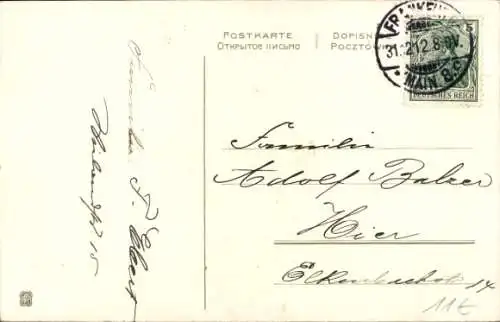 POSTKARTE
ОТКРЫТОЕ ПИСЬМО
DOPISN
POCZTÓW
FRANKFU
31.12.12.8-9V.
* MAIN 8.c
5
DEUTSCHES REICH
Familie
Adolf Balzer
Hier
Elkenbachstr 14
Familie F. Ebert
15
11E